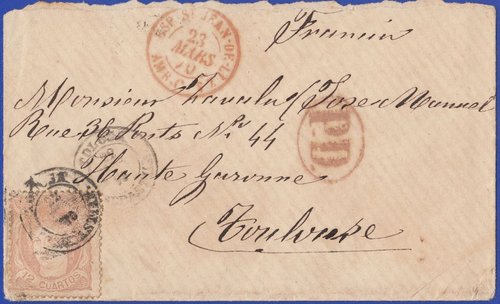 ESP. ST JEAN-DE-LUZ
23
MARS
70
AMB.
Francia
Monsieur Zavala (Jose Manuel
Rue 36 Ponts No 44
P.D.
Haute Garonne
Toulouse
12 CUARTOS